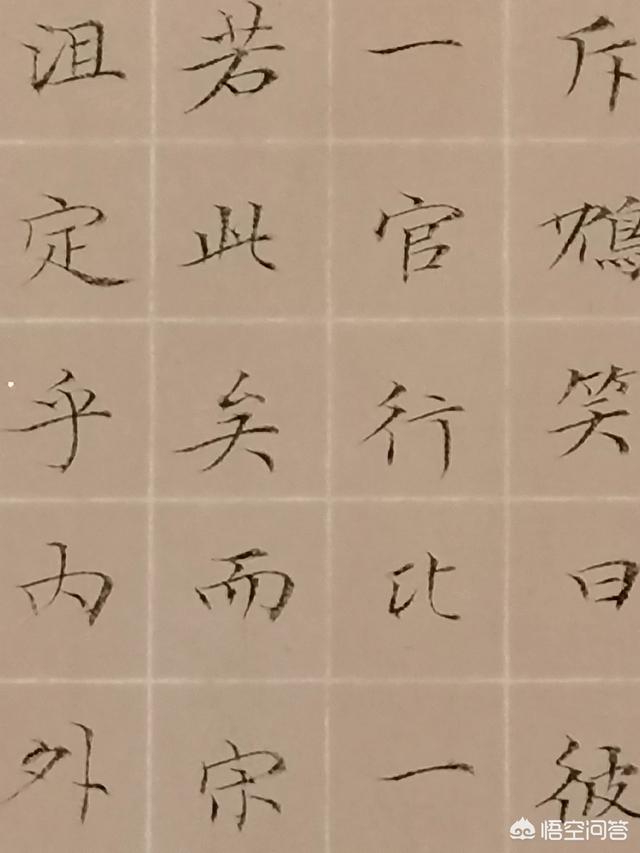 斥笑曰彼
一官行比一
若此矣而宋
沮定乎内外
悟空问答